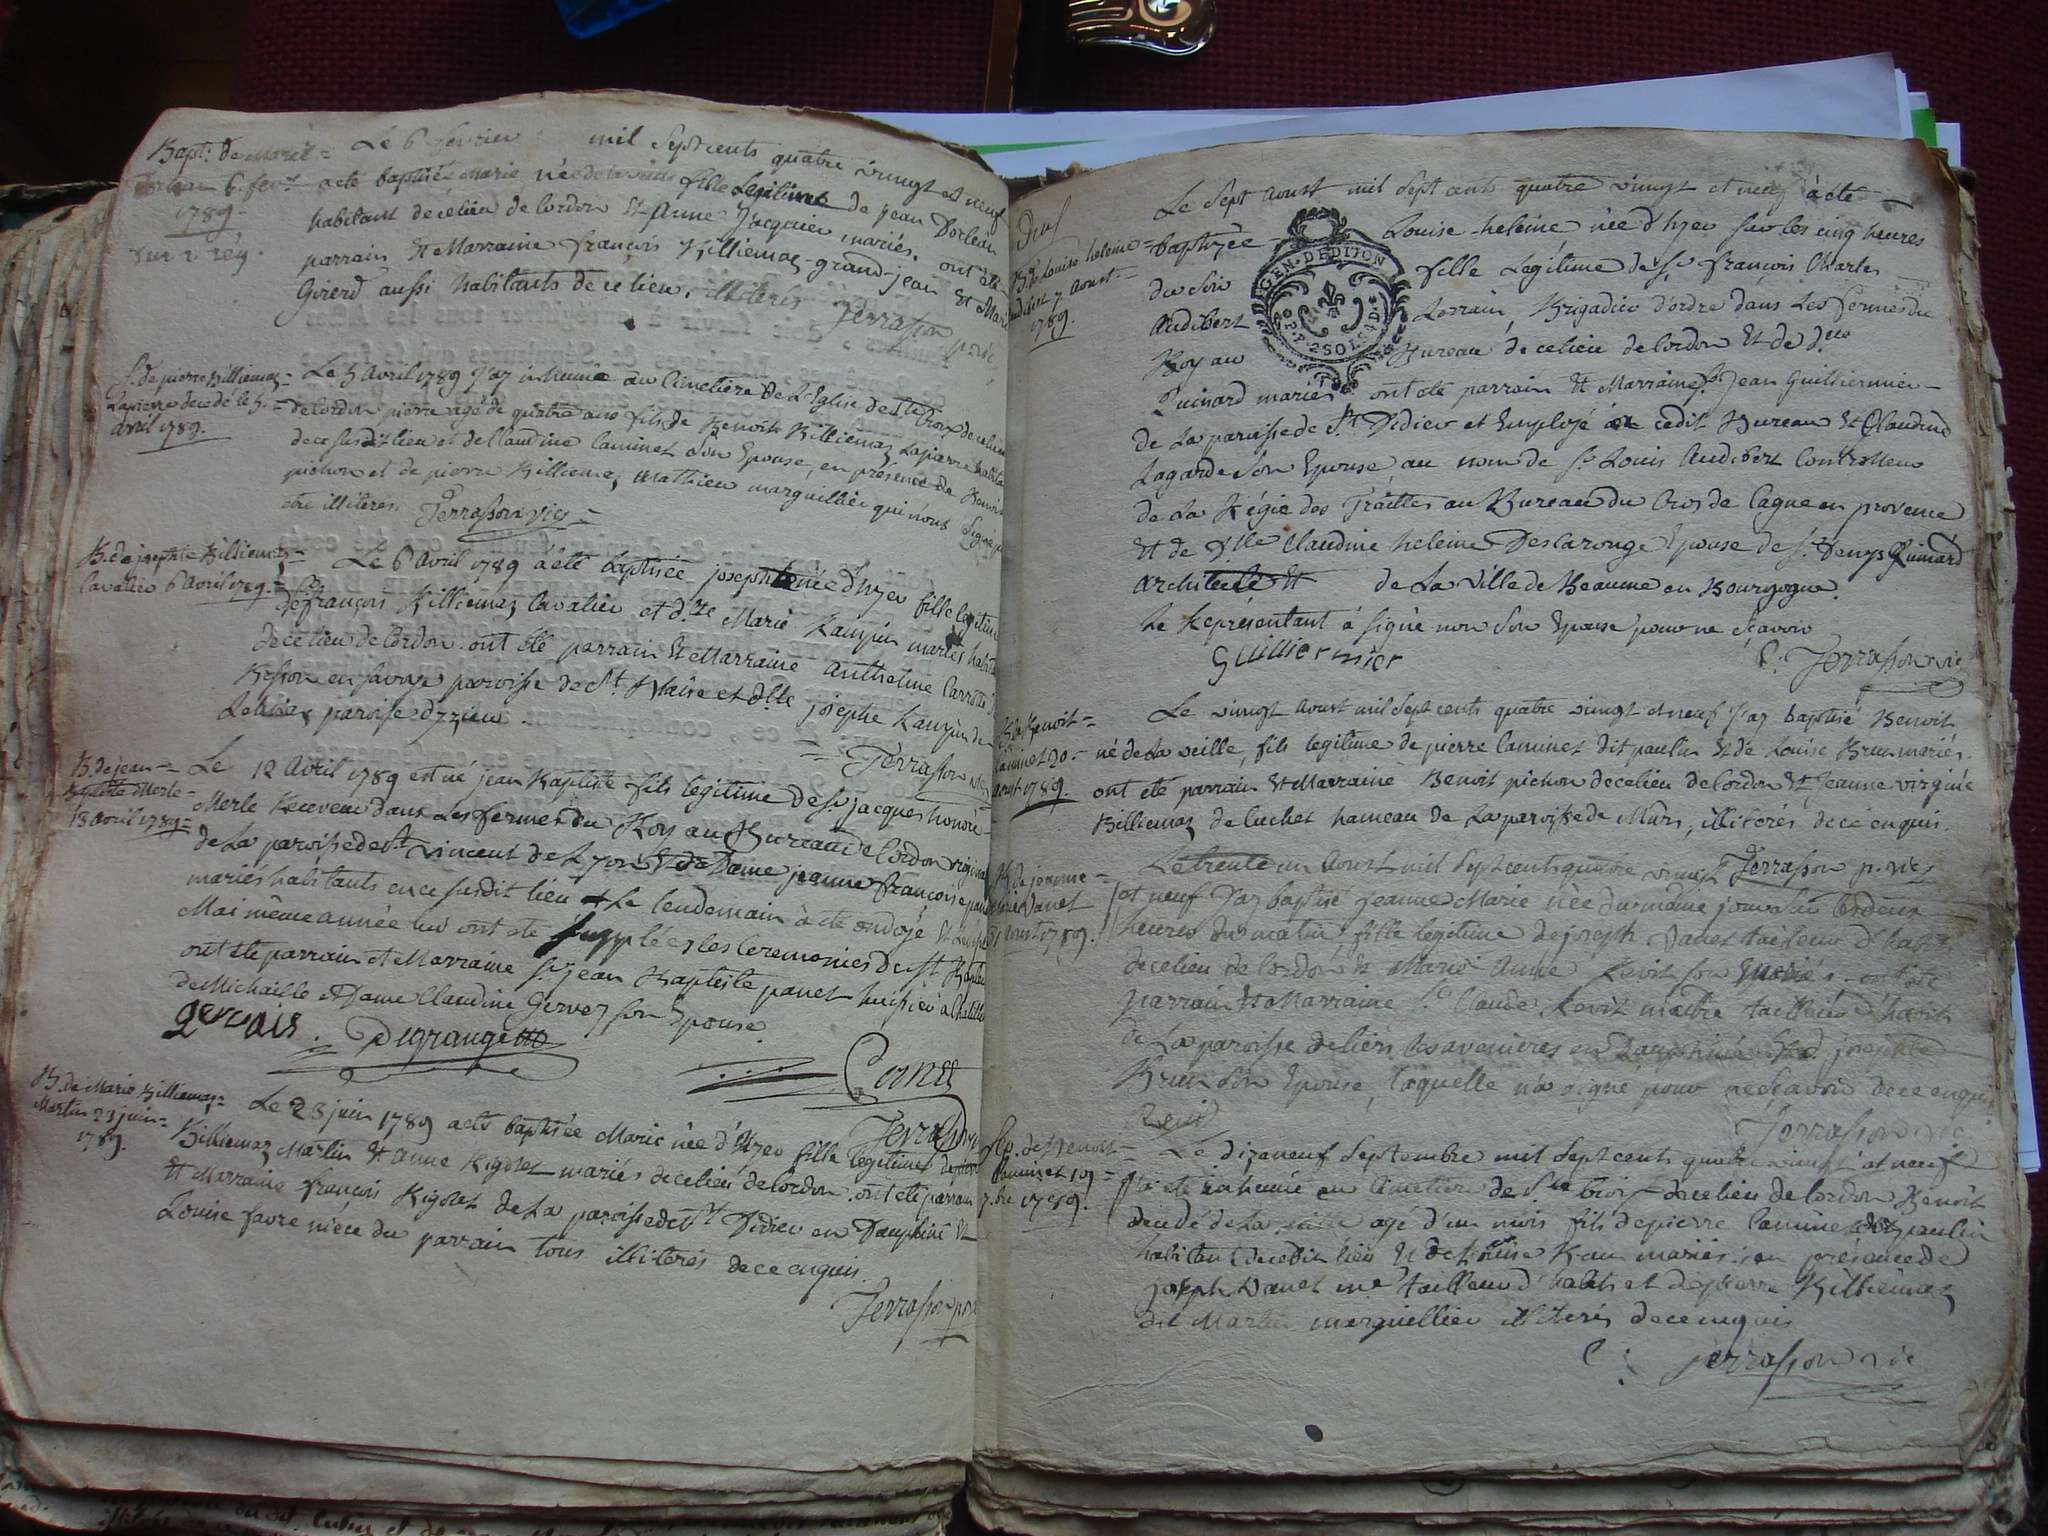 Bapt. de Marie
6 fevr
1789.
Le 6 fevrier mil sept cents quatre vingt et neuf
a été baptisée Marie née fille Legitime de jean Dorlean
habitant de ce lieu de Cordon et Anne Jacquier mariés. ont été
parrain et Marraine françois Billiemaz grand jean et Marie
Girerd aussi habitants de ce lieu. illiterés
Terrasson
S. de pierre Billiemaz
Lapierre decedé le 5.
avril 1789.
Le 5 Avril 1789 j'ay inhumé au Cimetière de L'Eglise de Ste Croix de ce lieu
de Cordon pierre agé de quatre ans fils de Benoit Billiemaz Lapierre
de ce susdit lieu et de Claudine Caminet son Epouse, en présence de Benoit
pichon et de pierre Billiemaz, Mathieu marguillier qui n'ont signé
etre illiterés Terrasson vic
B. de josephte Billiemaz
Cavalier 6 Avril 1789.
Le 6 Avril 1789 a été baptisée josephte née d'hyer fille legitime
de françois Billiemaz Cavalier et d.lle Marie mariés
de ce lieu de Cordon. ont été parrain et Marraine Anthelme
en savoye paroisse de St. Blaise et dlle josephe
paroisse
Terrasson vic
B. de jean
Baptiste Merle
13 avril 1789
Le 12 Avril 1789 est né jean Baptiste fils legitime de Sr jacques honoré
Merle Receveur dans Les fermes du Roy au Bureau de Cordon
de La paroisse de St vincent de Lyon et de Dame jeanne françoise
mariés habitants en ce susdit lieu et Le lendemain à été ondoyé et
Mai même année lui ont été supplées les Ceremonies de St. Baptême
ont été parrain et Marraine Sr jean Baptiste panet huissier à Chatillon
de Michaille et Dame Claudine Gervez son Epouse.
gervais. Degrange
Cornet
Terrasson
B. de Marie Billiemaz
Martin 23 juin
1789.
Le 23 juin 1789 a été baptisée Marie née d'hyer fille legitime
Billiemaz Martin et Anne Rigolet mariés de ce lieu de Cordon. ont été parrain
et Marraine françois Rigolet de La paroisse de St Didier en Dauphiné et
Louise favre nièce du parrain tous illiterés de ce enquis.
Terrasson
B. de Louise heleine
Audibert 7 Aoust
1789.
Le Sept Aoust mil sept cents quatre vingt et neuf à été
baptizée Louise heleine née d'hyer sur les cinq heures
du soir fille Legitime de Sr françois Charles
Audibert Lorrain, Brigadier d'ordre dans Les fermes du
Roy au Bureau de ce lieu de Cordon et de dlle
Quinard mariés ont été parrain et Marraine Sr. jean Guilliermier
GEN. D'EDITON
OP.P. 2SOL
de La paroisse de St Didier et Employé cedit Bureau et Claudine
Lagarde son Epouse au nom de Sr Louis Audibert Controlleur
de La Régie des Traittes au Bureau du Cros de Cagne en provence
et de dlle Claudine heleine Epouse de Sr. Denys Quinard
Architecte de La ville de Beaune en Bourgogne.
Le Représentant à signé non son Epouse pour ne sçavoir
Guilliermier
Terrasson vic
B. de Benoit
Caminet 20
aoust 1789.
Le vingt Aoust mil sept cents quatre vingt et neuf j'ay baptisé Benoit
né de La veille, fils legitime de pierre Caminet dit paulin et de Louise Brun mariés.
ont été parrain et Marraine Benoit pichon de ce lieu de Cordon et jeanne virginie
Billiemaz de luchet hameau de La paroisse de Murs, illiterés de ce enquis.
Terrasson p. vic
B. de jeanne
Marie Vanet
31 Aoust 1789.
Le trente un Aoust mil sept cents quatre vingt
et neuf j'ay baptisé jeanne Marie née du même jour sur les deux
heures du matin fille legitime de joseph Vanet tailleur d'habits
de ce lieu de Cordon et Marie Anne Revit son mariés. ont été
parrain et Marraine Sr Claude Revit maitre tailleur d'habit
de La paroisse de les avenieres en Dauphiné et d. josephte
Brun son Epouse, laquelle n'a signé pour ne sçavoir de ce enquis
Revit
Terrasson vic
Sep. de Benoit
Caminet 19
7.bre 1789.
Le dixneuf Septembre mil sept cents quatre vingt et neuf
j'ai été inhumé au Cimetiere de Ste Croix de ce lieu de Cordon Benoit
decedé de La veille agé d'un mois fils de pierre Caminet dit paulin
habitant de cedit lieu et de Louise Brun mariés: en présence de
joseph Vanet me tailleur d'habits et de pierre Billiemaz
dit Martin marguillier illiterés de ce enquis
Terrasson vic